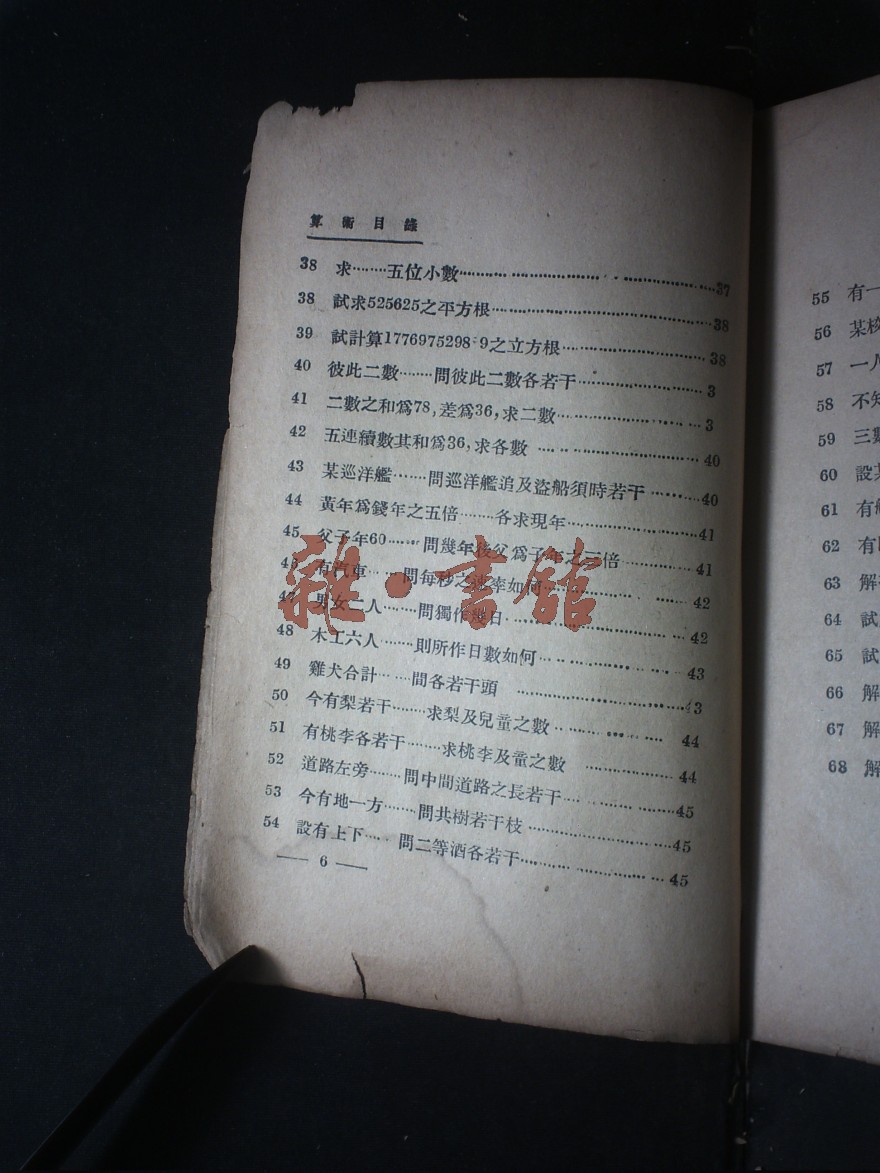 算術目錄
38 求········五位小數·····················37
38 試求525625之平方根·····················38
39 試計算1776975298·9之立方根·····················38
40 彼此二數········問彼此二數各若干·····················3
41 二數之和爲78,差爲36,求二數·····················3
42 五連續數其和爲36,求各數·····················40
43 某巡洋艦········問巡洋艦追及盜船須時若干·········40
44 黃年爲錢年之五倍········各求現年·····················41
45 父子年60········問幾年後父爲子年之三倍············41
46 有汽車········問每秒之速率如何·····················42
47 男女二人········問獨作幾日·····················42
48 木工六人········則所作日數如何·····················43
49 雞犬合計········間各若干頭·····················43
50 今有梨若干········求梨及兒童之數·····················44
51 有桃李各若干········求桃李及童之數·····················44
52 道路左旁········問中間道路之長若干·····················45
53 今有地一方········問共樹若干枝·····················45
54 設有上下········問二等酒各若干·····················45
— 6 —
55 有一
56 某
57 一人
58 不知
59 三數
60 設某
61 有
62 有
63 解
64 試
65 試
66 解
67 解
68 解
雜·書館